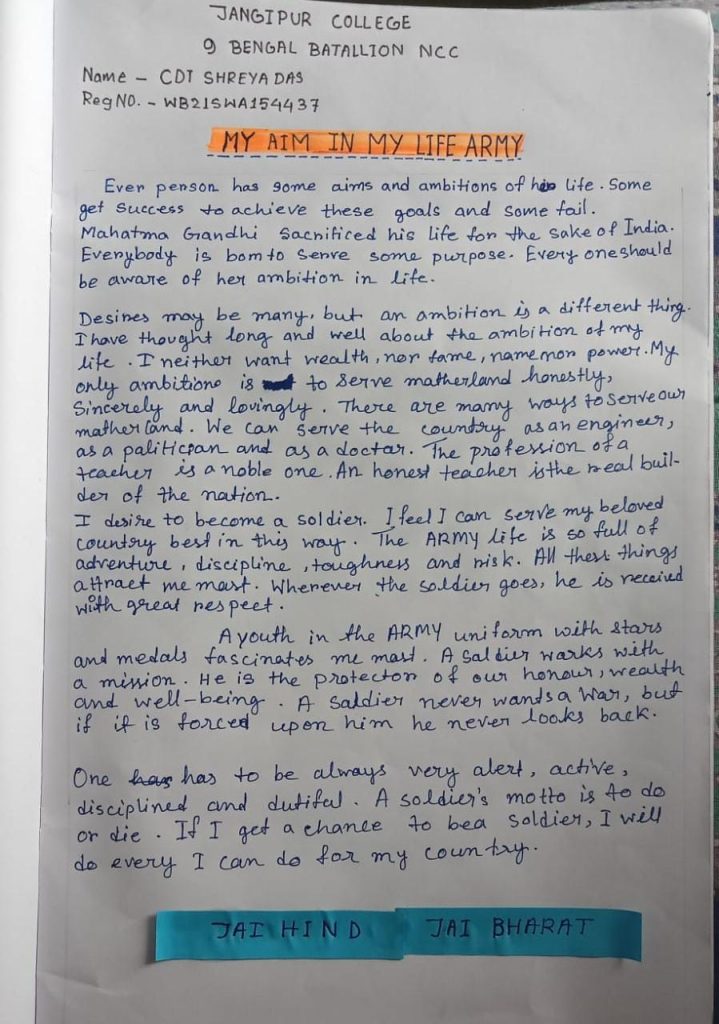 JANGIPUR COLLEGE
9 BENGAL BATALLION NCC
Name - CDT SHREYA DAS
Reg NO. - WB21SWA154437
MY AIM IN MY LIFE ARMY
Ever person has some aims and ambitions of his life. Some
get success to achieve these goals and some fail.
Mahatma Gandhi sacrificed his life for the sake of India.
Everybody is born to serve some purpose. Every one should
be aware of her ambition in life.
Desires may be many, but an ambition is a different thing.
I have thought long and well about the ambition of my
life. I neither want wealth, nor fame, name nor power. My
only ambitions is to serve matherland honestly,
Sincerely and lovingly. There are many ways to serve our
matherland. We can serve the country as an engineer,
as a palitician and as a doctar. The profession of a
teacher is a noble one. An honest teacher is the real buil-
der of the nation.
I desire to become a soldier. I feel I can serve my beloved
country best in this way. The ARMY life is so full of
adventure, discipline, toughness and risk. All these things
attract me mast. Wherever the soldier goes, he is received
with great respect.
A youth in the ARMY uniform with stars
and medals fascinates me mast. A saldier warks with
a mission. He is the protector of our honour, wealth
and well-being. A saldier never wants a war, but
if it is forced upon him he never looks back.
One has to be always very alert, active,
disciplined and dutiful. A soldier's motto is to do
or die. If I get a chance to be a soldier, I will
do every I can do for my country.
JAI HIND JAI BHARAT